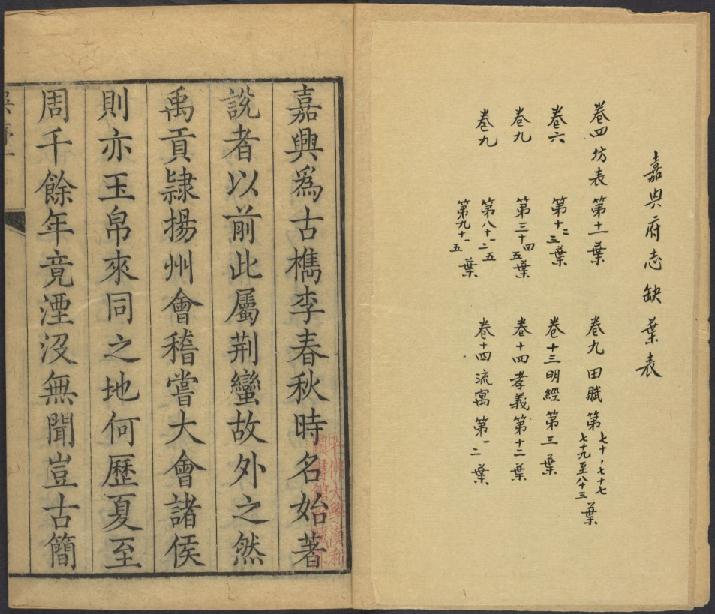 嘉興府志缺葉表
卷四 坊表 第十一葉
卷六 第十二三葉
卷九 第三十四五葉
卷九 第八十一二五
第九十一五葉
卷九 田賦 第七十,七十七七十九至八十三葉
卷十三明經 第三葉
卷十四孝義第十二葉
卷十四流寓 第一二葉
嘉興爲古檇李春秋時名始著
說者以前此屬荆蠻故外之然
禹貢隷揚州會稽嘗大會諸侯
則亦玉帛來同之地何歷夏至
周千餘年竟湮没無聞豈古簡